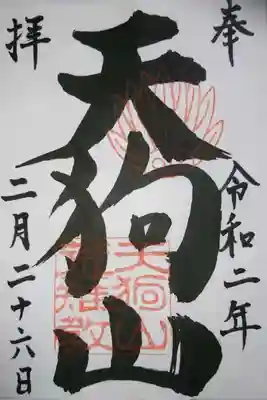 奉拝
天狗山
令和二年
二月二十六日